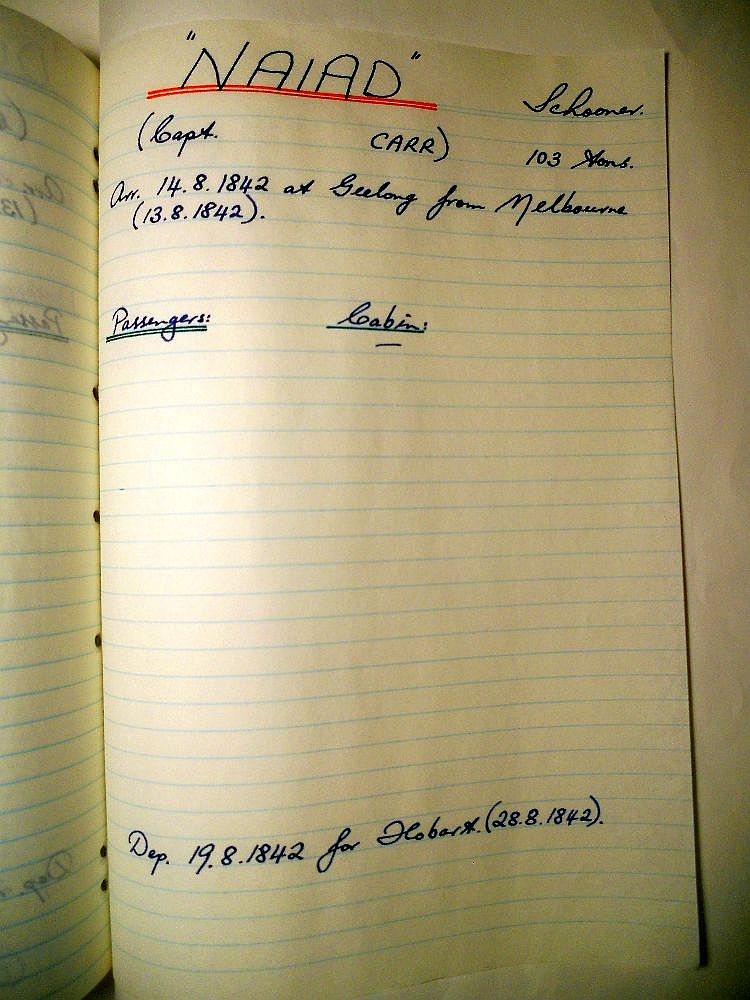 "NAIAD"
Schooner.
(Capt. CARR)
103 tons.
Arr. 14.8.1842 at Geelong from Melbourne
(13.8.1842).
Passengers: Cabin:
—
Dep. 19.8.1842 for Hobart. (28.8.1842).